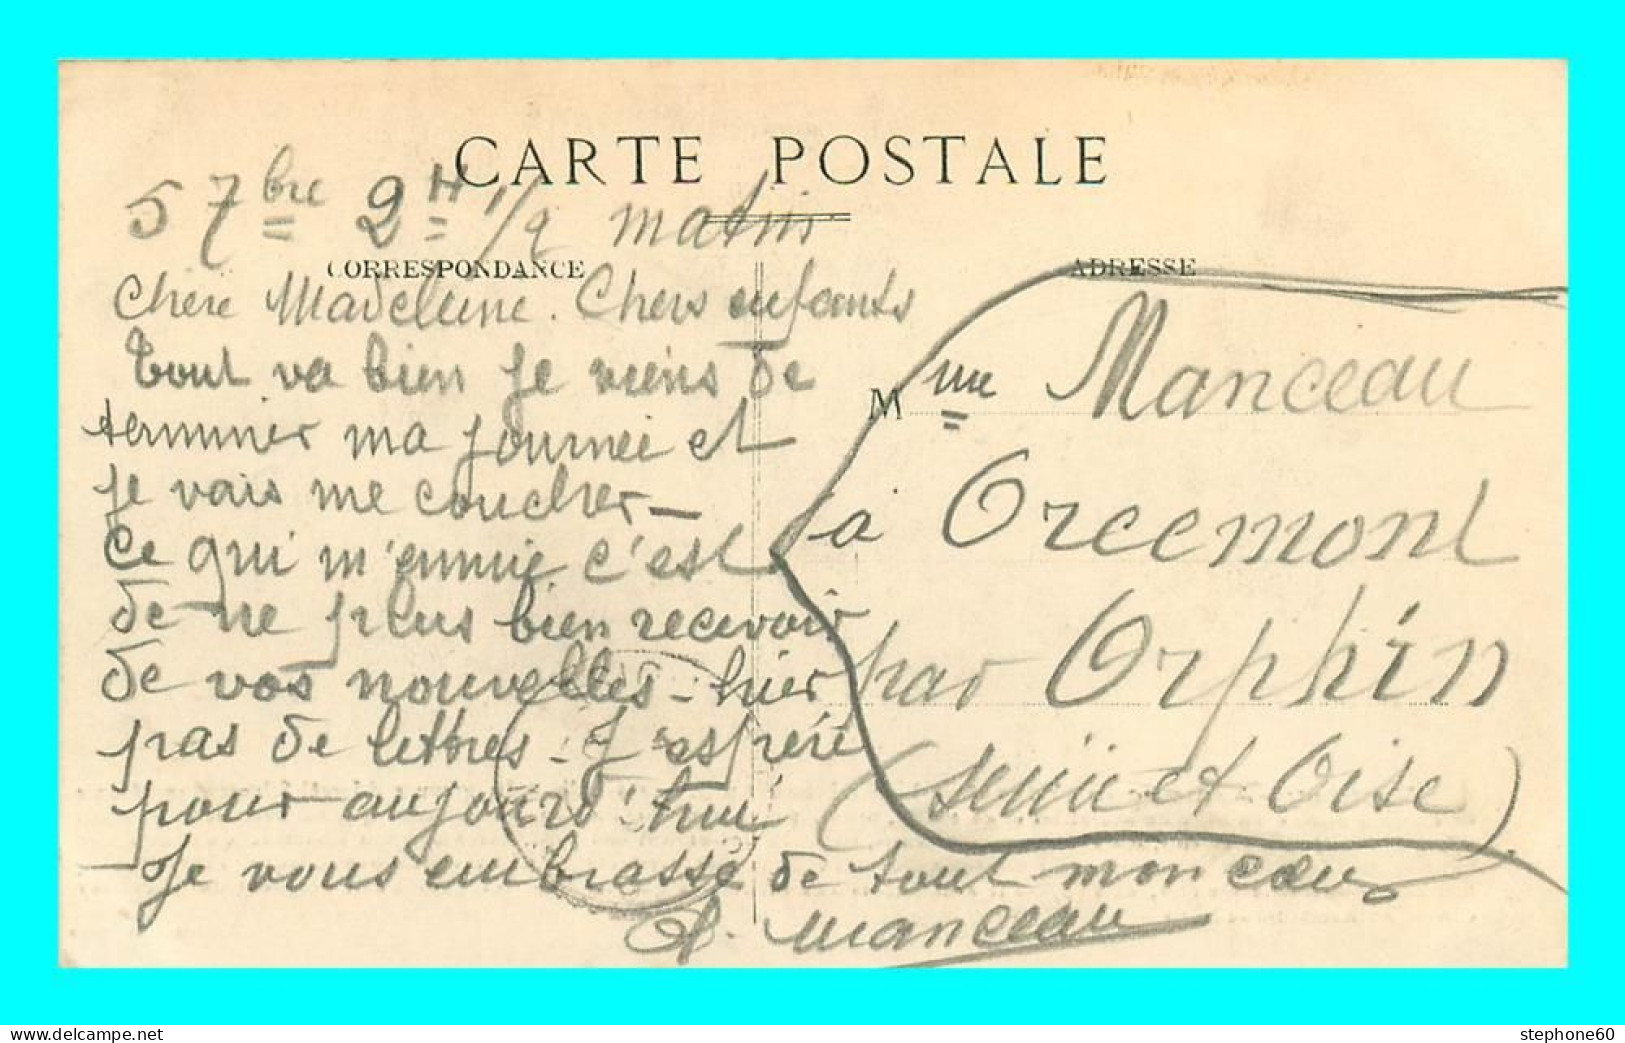 CARTE POSTALE
5 7bre 2H 1/2 matin
CORRESPONDANCE
Chère Madeleine. Chers enfants
tout va bien je viens de
terminer ma journée et
je vais me coucher -
Ce qui m'ennuie c'est
de ne plus bien recevoir
de vos nouvelles - hier
pas de lettres - J'espère
pour aujourd'hui
Je vous embrasse de tout mon cœur
Manceau
ADRESSE
Mme Manceau
à Orcemont
par Orphin
(Seine et Oise)
www.delcampe.net
stephone60